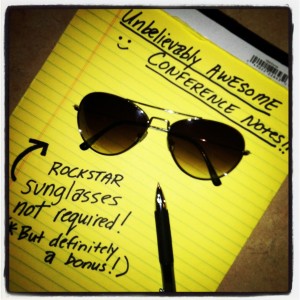 Unbelievably AWESOME
CONFERENCE Notes!!
ROCKSTAR
sunglasses
not required!
(* But definitely
a bonus!)